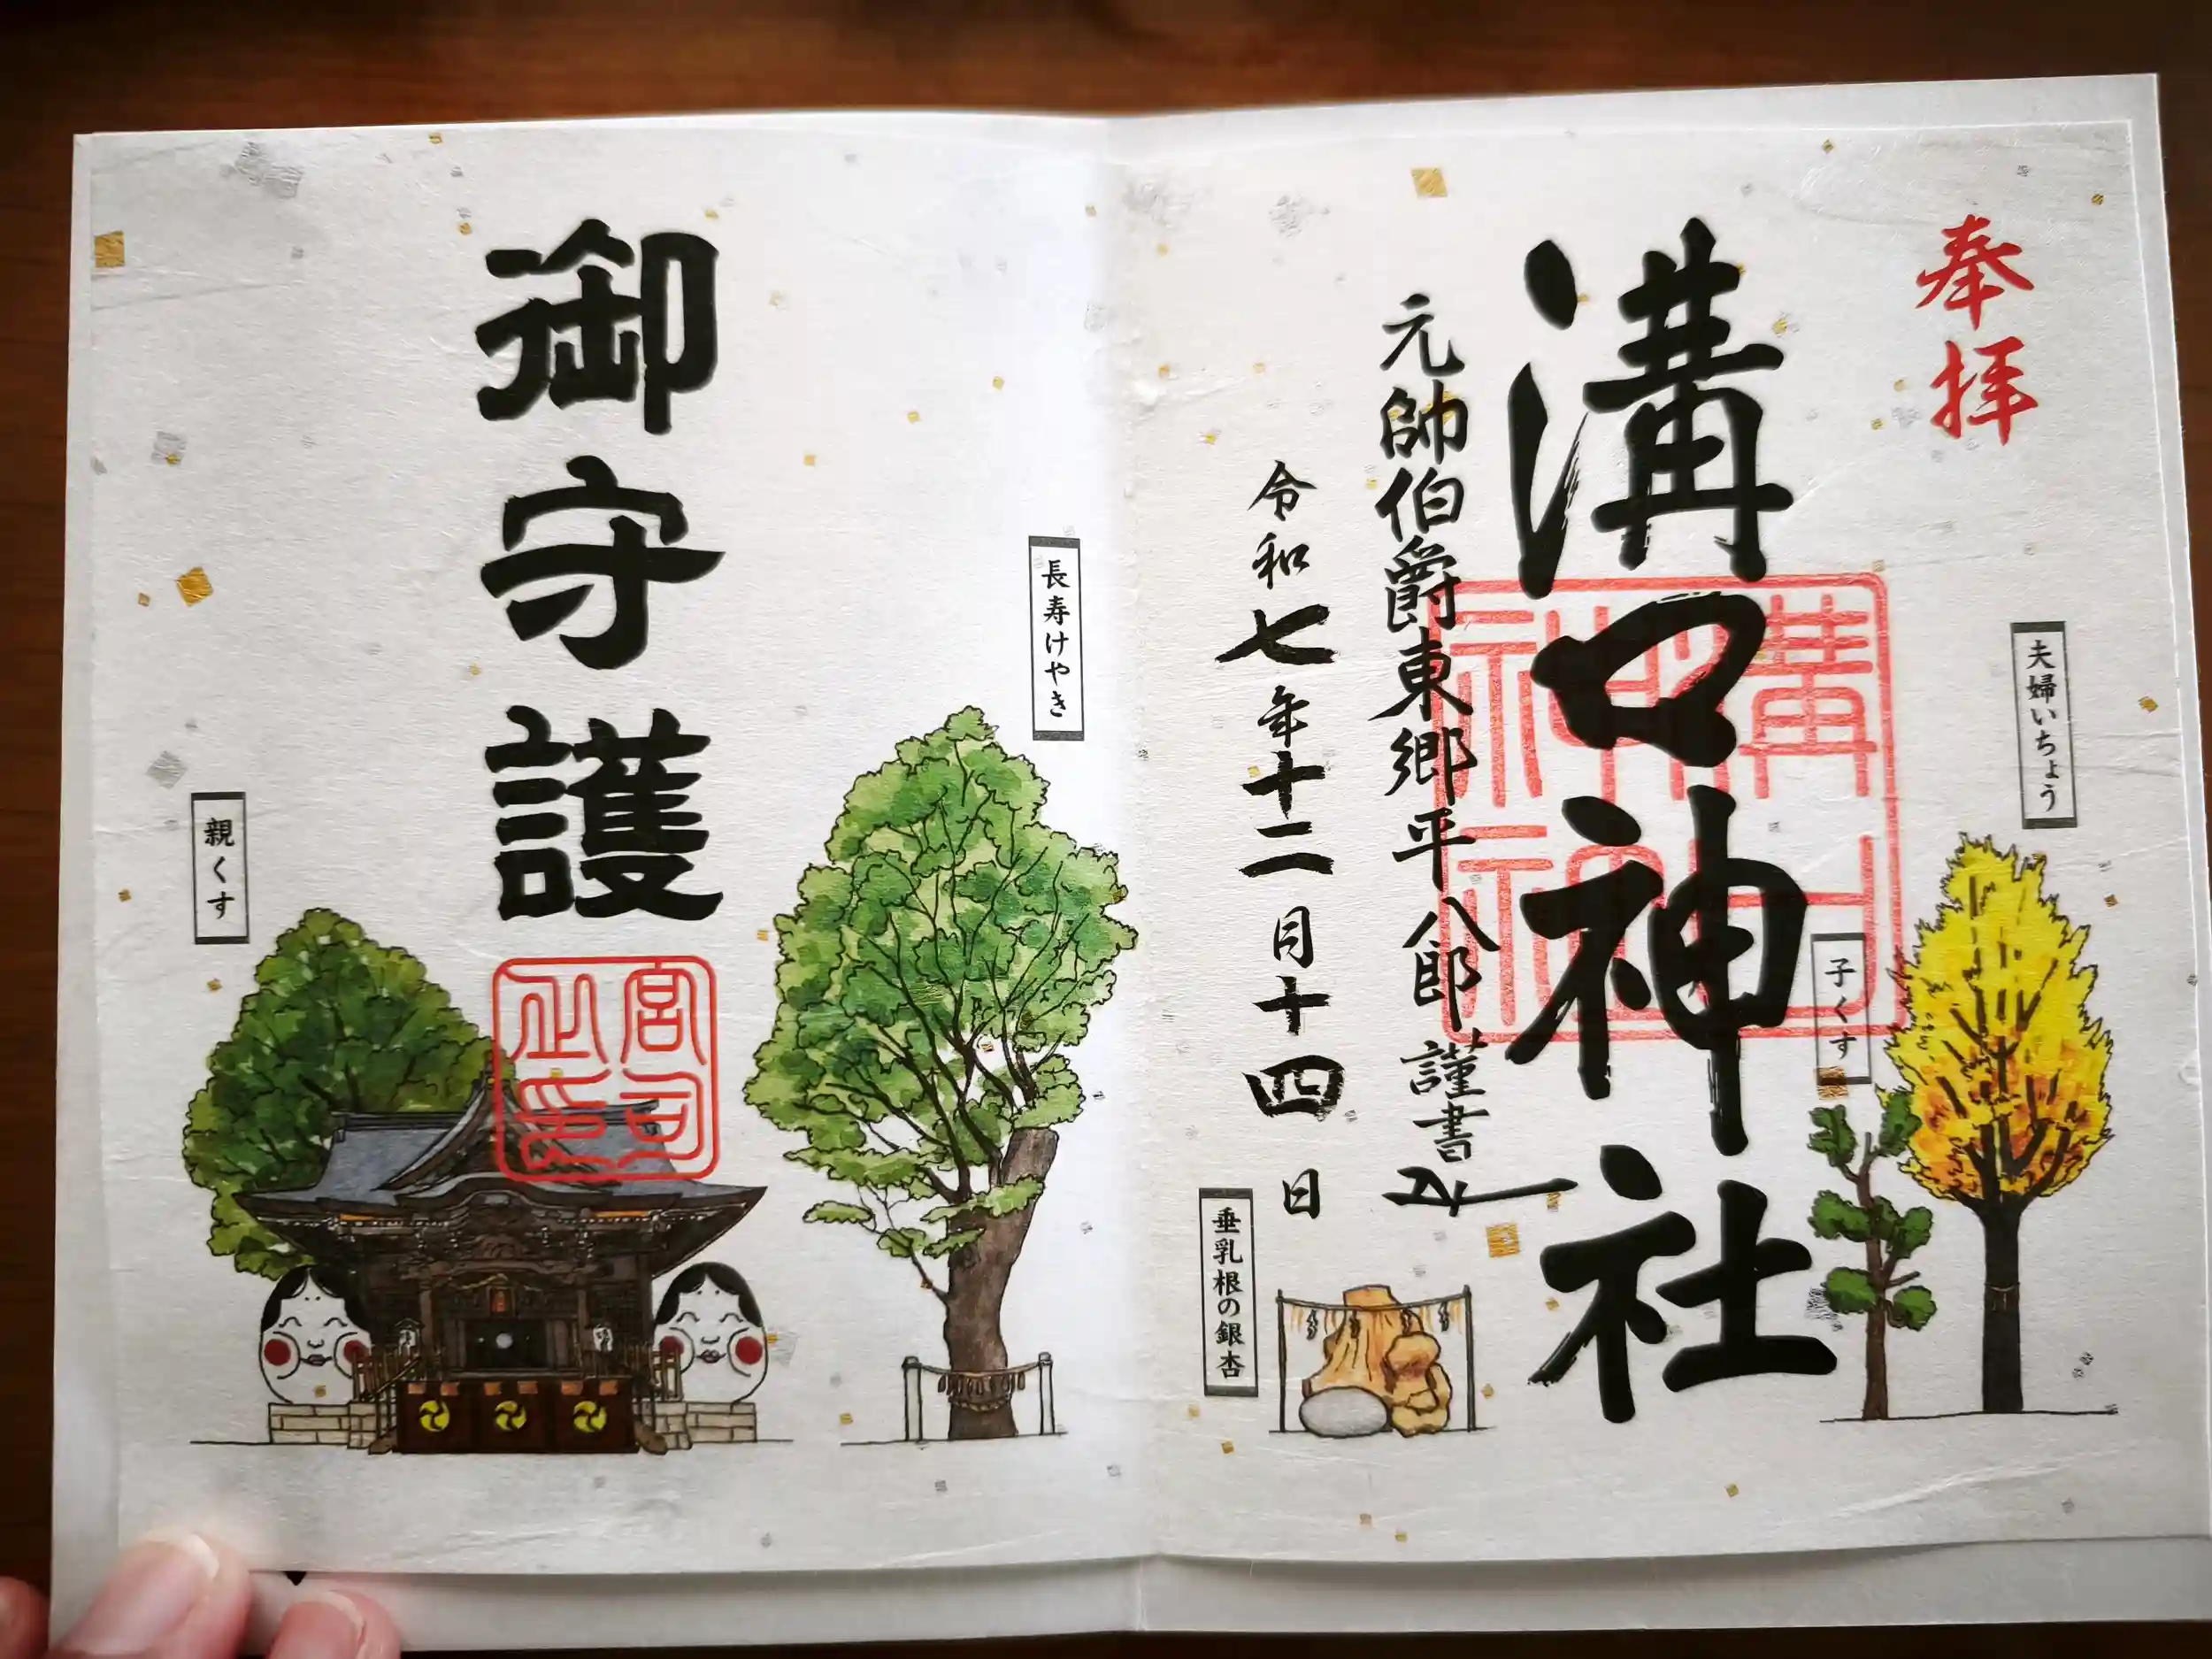 奉拝
夫婦いちょう
子くす
溝口神社
溝口神社
元帥伯爵東郷平八郎謹書
令和七年十二月十四日
垂乳根の銀杏
長寿けやき
御守護
宮司之印
親くす